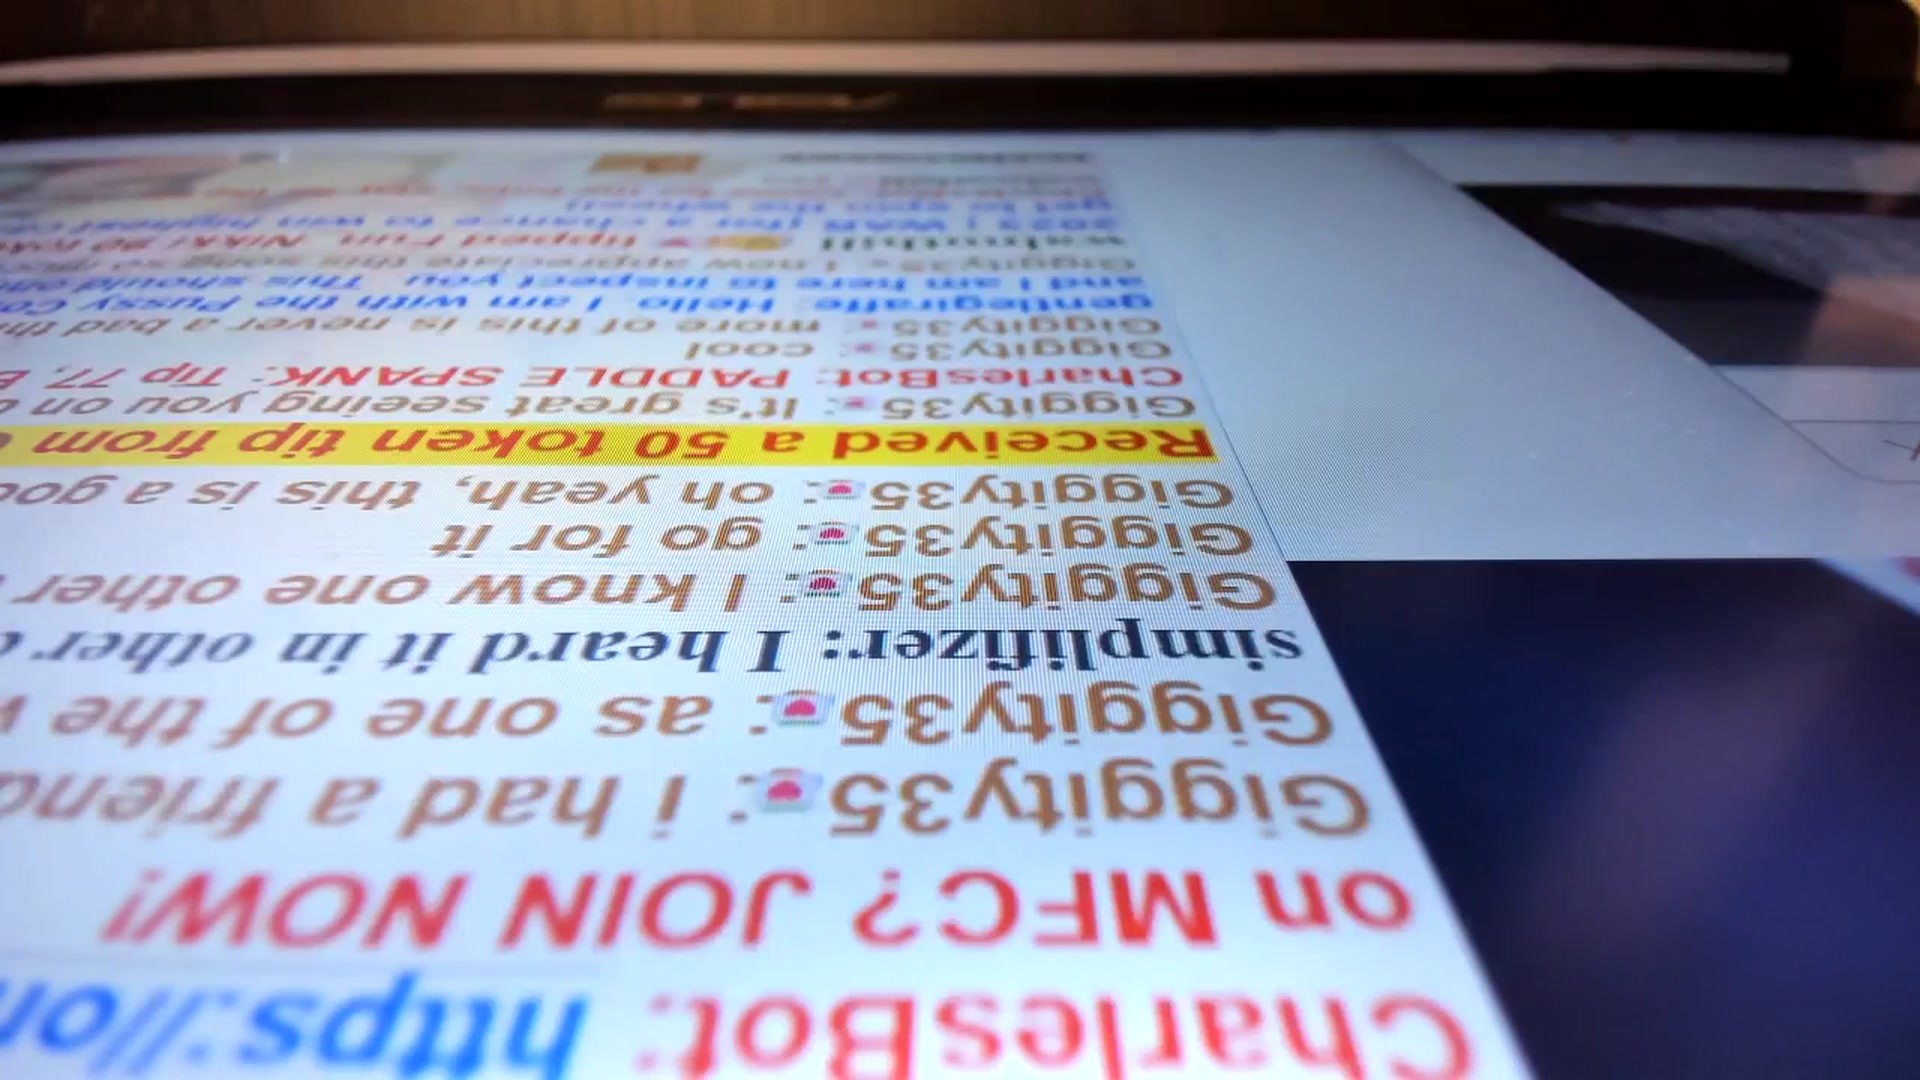 CharlesBot: https://on
on MFC? JOIN NOW!
Giggity35: i had a friend
Giggity35: as one of the
simplifizer: I heard it in other
Giggity35: I know one other
Giggity35: go for it
Giggity35: oh yeah, this is a goo
Received a 50 token tip from
Giggity35: It's great seeing you on
CharlesBot: PADDLE SPANK: Tip 77,
Giggity35: cool
Giggity35: more of this is never a bad
gentlegiraffe: Hello, I am with the Pussy
and I am here to inspect you. This should
Giggity35: I now appreciate this song so
walnuthill tipped Fun, Nikki 90
for a chance to win
get to spin the wheel